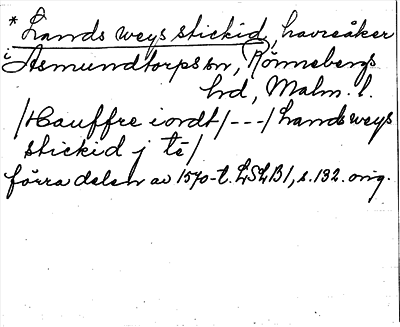 * Lands weys stickid, havreåker
i Asmundtorps sn, Rönnebergs
hd, Malm. l.
/Hauffre iordt/---/Lands weys
stickid j tē/
förra delen av 1570-t. LSLB1, s. 132. orig.